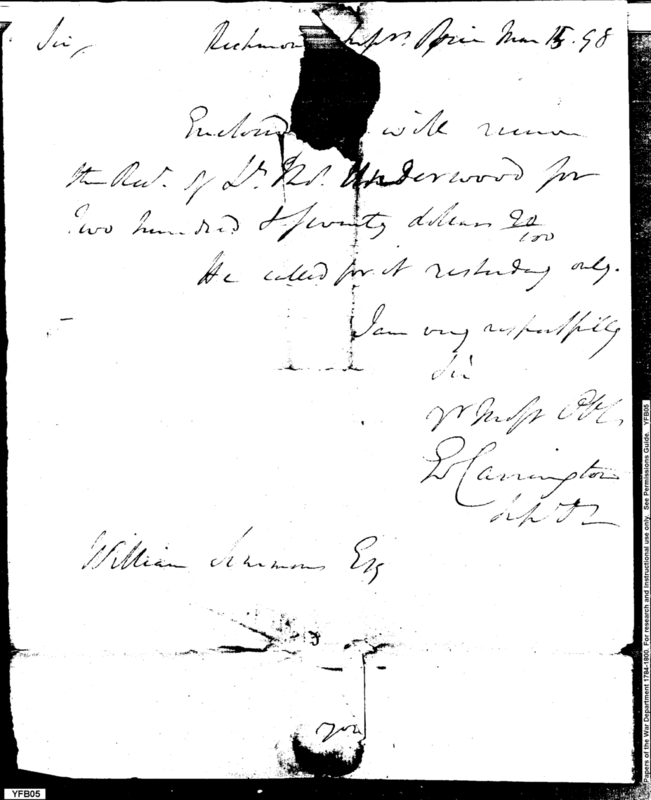 Sir, Richmond Supvs. Office Mar 15. 98
Enclosed will receive
the Rect. of Lt. Underwood for
Two hundred & seventy dollars 20/100
He called for it yesterday only.
I am very respectfully
Sir
yr Most Obt.
Ed Carrington
William Simmons Esq
you
YFB05
Papers of the War Department 1784-1800. For research and instructional use only. See Permissions Guide. YFB05